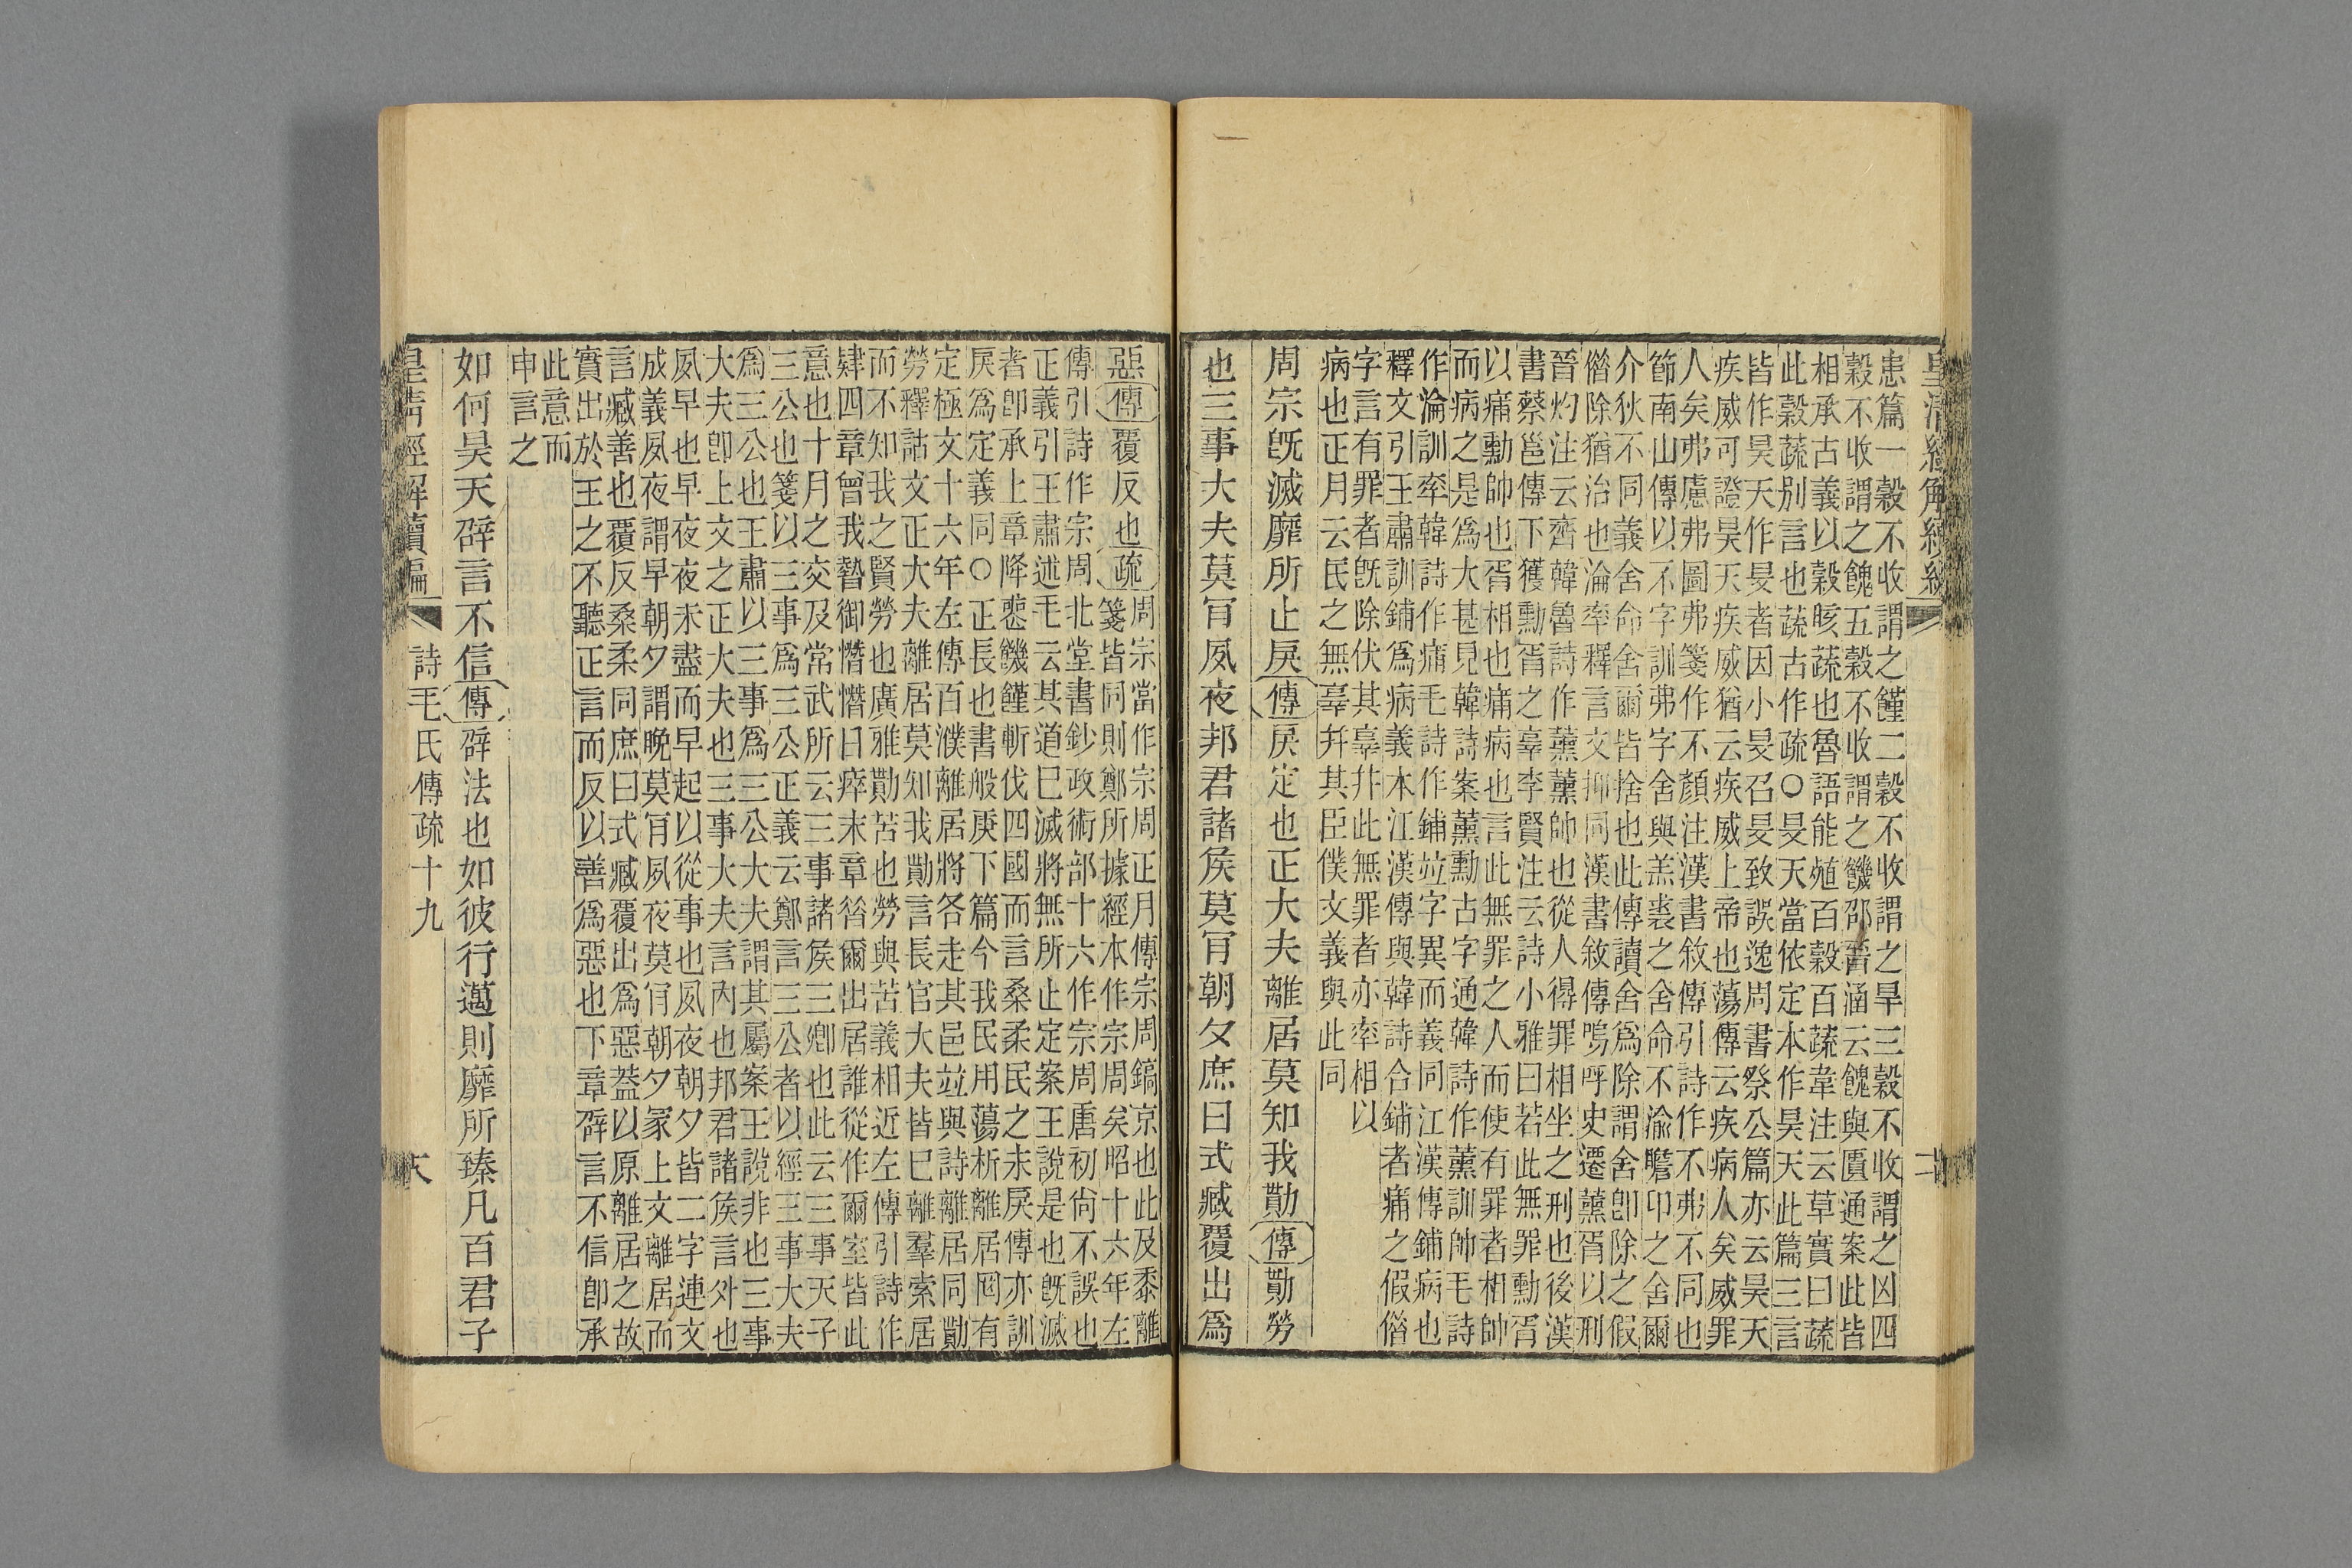 皇清經解續編
患篇一穀不收謂之饉二穀不收謂之旱三穀不收謂之凶四
穀不收謂之餽五穀不收謂之饑邵晉涵云餽與匱通案此皆
相承古義以穀晐蔬也魯語能殖百穀百蔬韋注云草實曰蔬
此穀蔬別言也蔬古作疏○旻天當依定本作昊天此篇三言
皆作昊天作旻者因小旻召旻致誤逸周書祭公篇亦云昊天
疾威可證昊天疾威猶云疾威上帝也蕩傳云疾病人矣威罪
人矣弗慮弗圖弗箋作不顏注漢書敘傳引詩作不弗不同也
節南山傳以不字訓弗字舍與羔裘之舍命不渝瞻卬之舍爾
介狄不同義舍命舍爾皆捨也此傳讀舍爲除謂舍卽除之假
僭除猶治也淪率釋言文抑同漢書敘傳嗚呼史遷薰胥以刑
晉灼注云齊韓魯詩作薰薰帥也從人得罪相坐之刑也後漢
書蔡邕傳下獲勳胥之辜李賢注云詩小雅曰若此無罪勳胥
以痡勳帥也胥相也痡病也言此無罪之人而使有罪者相帥
而病之是爲大甚見韓詩案薰勳古字通韓詩作薰訓帥毛詩
作淪訓率韓詩作痡毛詩作鋪竝字異而義同江漢傳鋪病也
釋文引王肅訓鋪爲病義本江漢傳與韓詩合鋪者痡之假僭
字言有罪者旣除伏其辜幷此無罪者亦率相以
病也正月云民之無辜幷其臣僕文義與此同
周宗旣滅靡所止戾傳戾定也正大夫離居莫知我勩傳勩勞
也三事大夫莫肎夙夜邦君諸侯莫肎朝夕庶曰式臧覆出爲
惡傳覆反也疏周宗當作宗周正月傳宗周鎬京也此及黍離
箋皆同則鄭所據經本作宗周矣昭十六年左
傳引詩作宗周北堂書鈔政術部十六作宗周唐初尙不誤也
正義引王肅述毛云其道已滅將無所止定案王說是也旣滅
者卽承上章降喪饑饉斬伐四國而言桑柔民之未戾傳亦訓
戾爲定義同○正長也書般庚下篇今我民用蕩析離居罔有
定極文十六年左傳百濮離居將各走其邑竝與詩離居同勩
勞釋詁文正大夫離居莫知我勩言長官大夫皆已離羣索居
而不知我之賢勞也廣雅勩苦也勞與苦義相近左傳引詩作
肄四章曾我暬御憯憯日瘁末章咎爾出居誰從作爾室皆此
意也十月之交及常武所云三事諸侯三卿也此云三事天子
三公也箋以三事爲三公正義云鄭言三公者以經三事大夫
爲三公也王肅以三事爲三公大夫謂其屬案王說非也三事
大夫卽上文之正大夫也三事大夫言內也邦君諸侯言外也
夙早也早夜夜未盡而早起以從事也夙夜朝夕皆二字連文
成義夙夜謂早朝夕謂晚莫肎夙夜莫肎朝夕冡上文離居而
言臧善也覆反桑柔同庶曰式臧覆出爲惡葢以原離居之故
實出於王之不聽正言而反以善爲惡也下章辟言不信卽承
此意而
申言之
如何昊天辟言不信傳辟法也如彼行邁則靡所臻凡百君子
皇清經解續編 詩毛氏傳疏十九